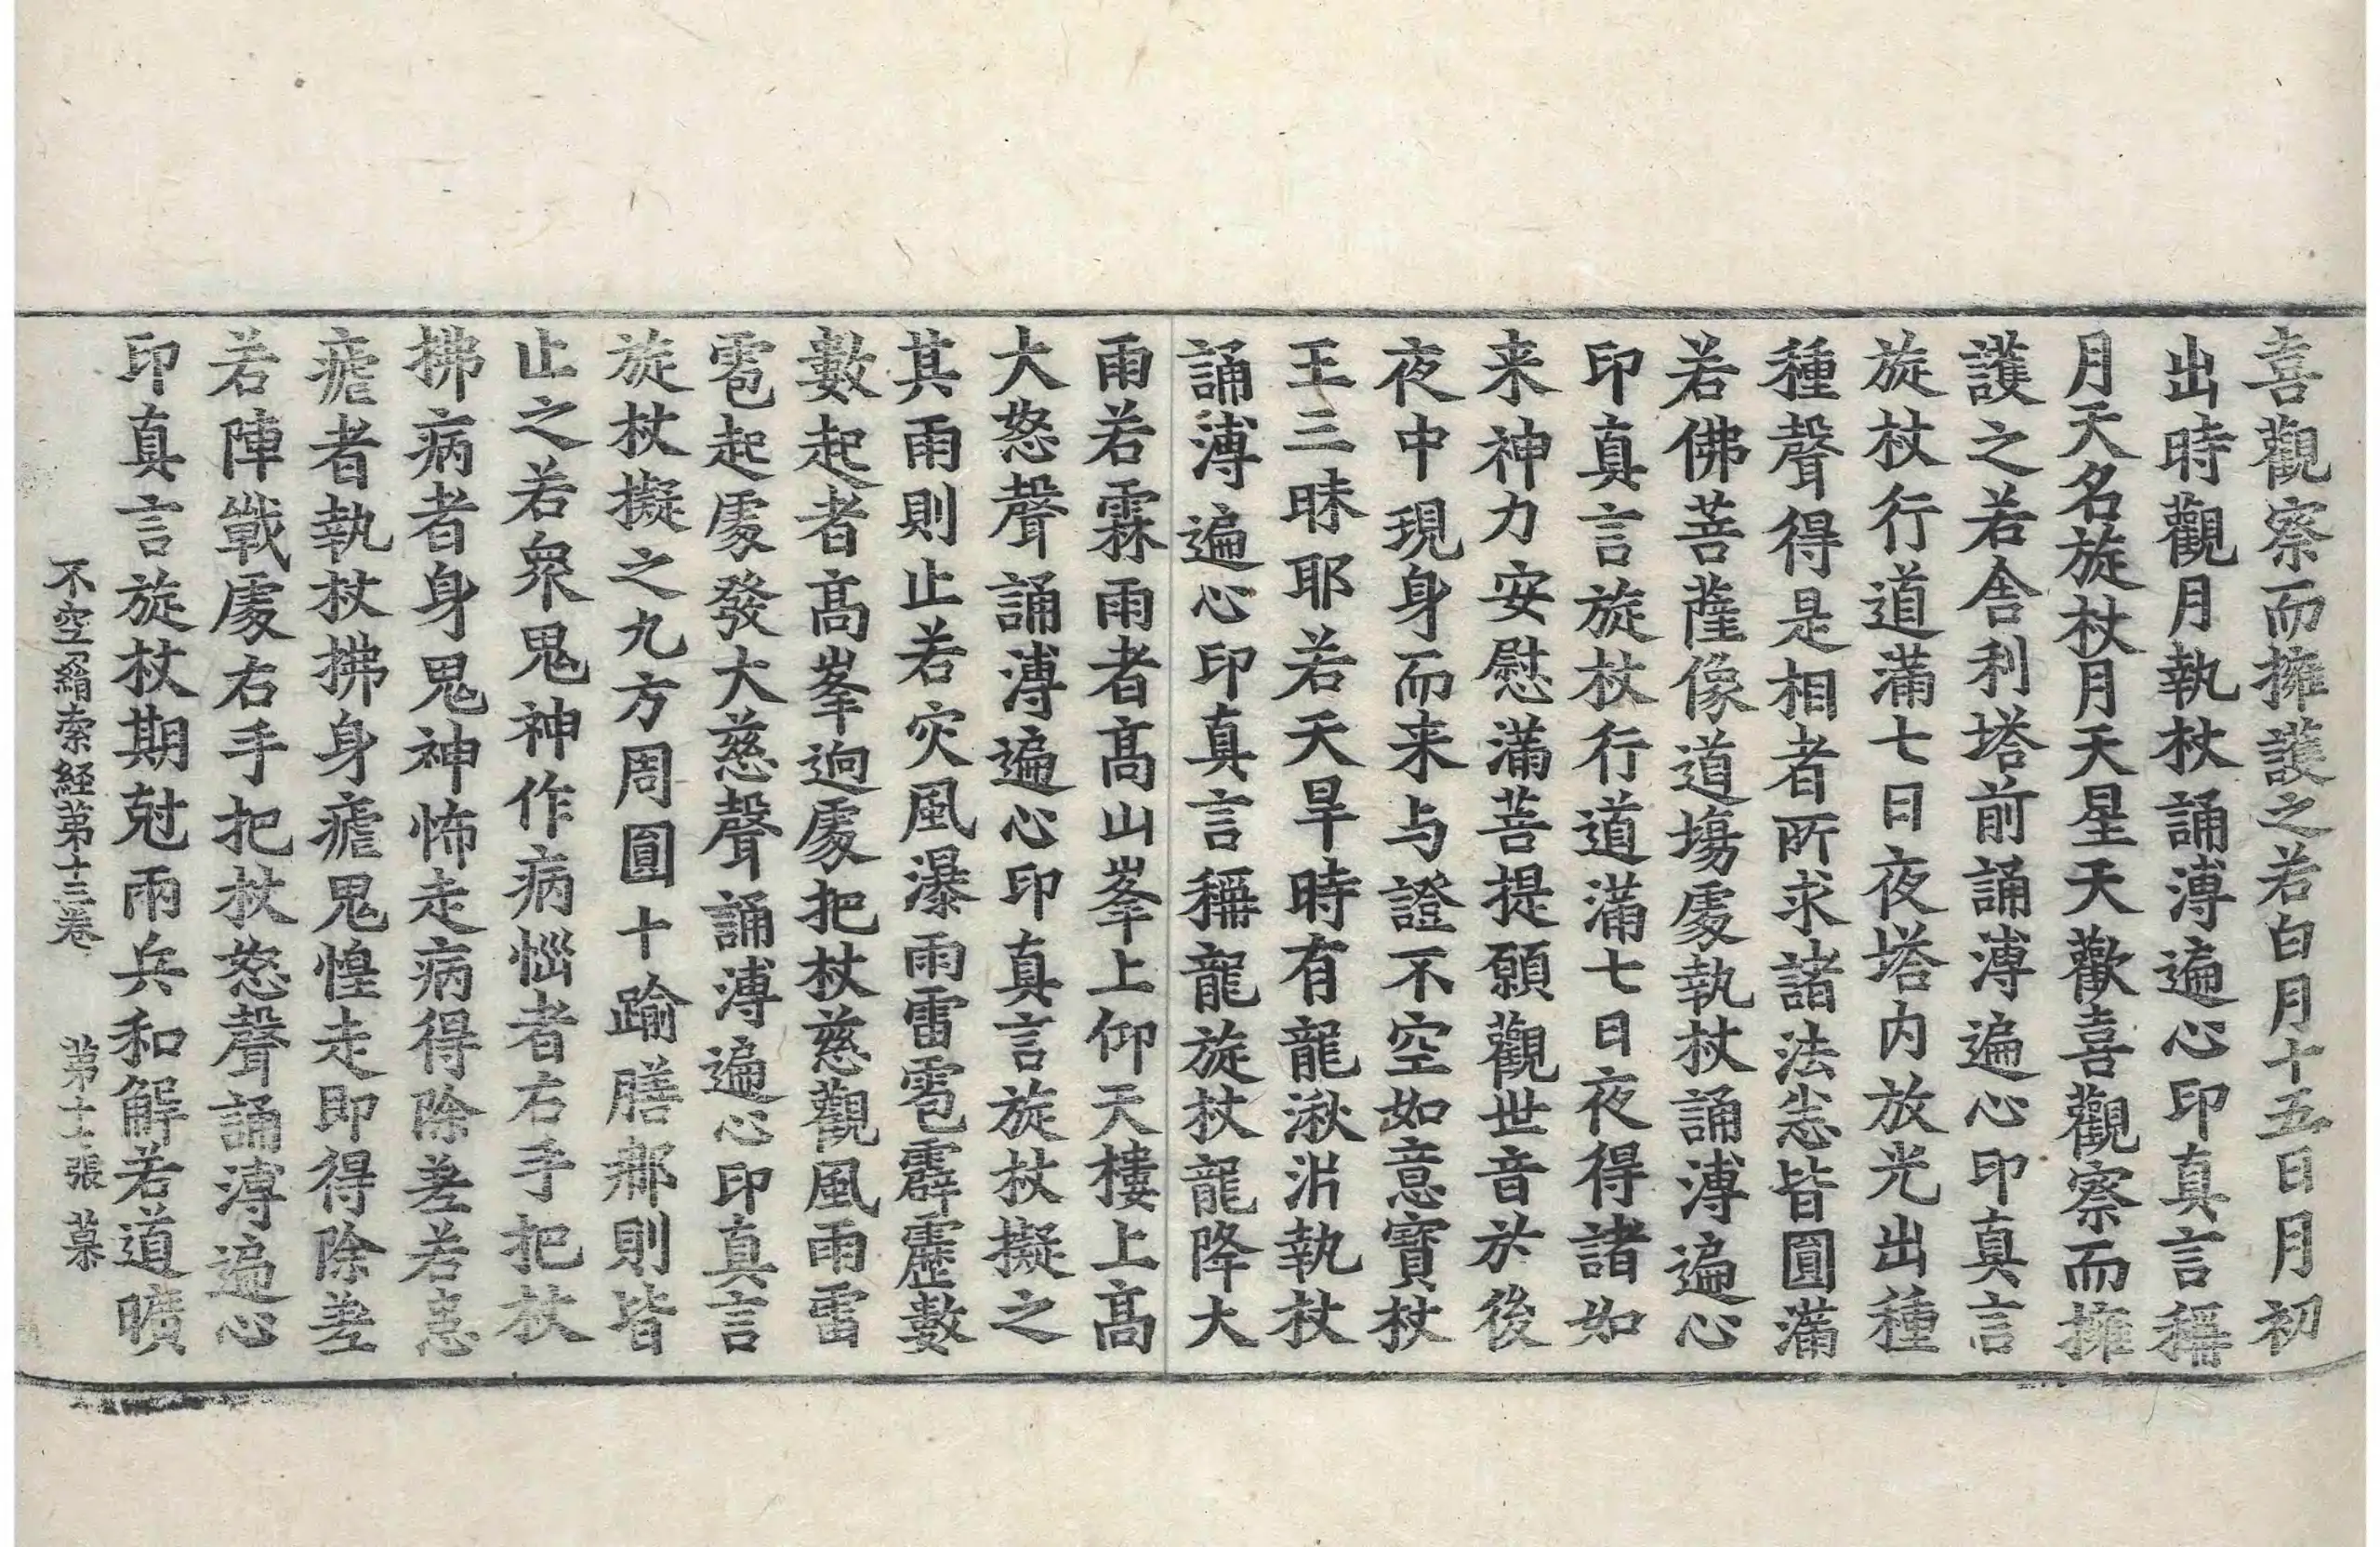 喜觀察而擁護之若白月十五日月初
出時觀月執杖誦溥遍心印真言稱
月天名旋杖月天星天歡喜觀察而擁
護之若舎利塔前誦溥遍心印真言
旋杖行道滿七日夜塔内放光出種
種聲得是相者所求諸法悉皆圓滿
若佛菩薩像道場處執杖誦溥遍心
印真言旋杖行道滿七日夜得諸如
来神力安慰滿菩提願觀世音於後
夜中現身而来与證不空如意寶杖
王三昧耶若天旱時有龍湫泋執杖
誦溥遍心印真言稱龍旋杖龍降大
雨若霖雨者髙山峯上仰天樓上髙
大怒聲誦溥遍心印真言旋杖擬之
其雨則止若灾風瀑雨雷雹霹靂數
數起者髙峯逈處把杖慈觀風雨雷
雹起處發大慈聲誦溥遍心印真言
旋杖擬之九方周圓十踰膳那則皆
止之若衆鬼神作病惱者右手把杖
拂病者身鬼神怖走病得除差若患
瘧者執杖拂身瘧鬼惶走即得除差
若陣戰處右手把杖怒聲誦溥遍心
印真言旋杖期尅兩兵和解若道曠
不空羂索経第十三卷 第十二張 墓